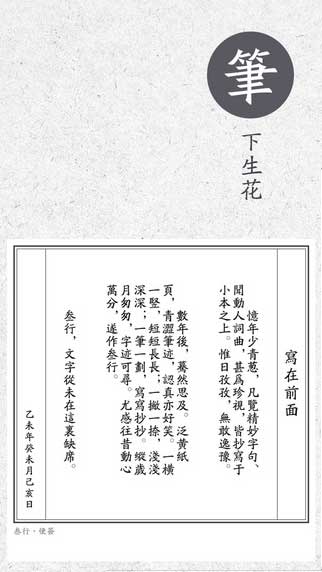 筆
下生花
寫在前面
憶年少青葱，凡覽精妙字句、
聞動人詞曲，甚爲珍視，皆抄寫于
小本之上。惟日孜孜，無敢逸豫。
數年後，驀然思及。泛黄紙
頁，青澀筆迹，認真亦好笑。一横
一竪，短短長長；一撇一捺，淺淺
深深；一筆一劃，寫寫抄抄。縱歲
月匆匆，字迹可尋。尤感往昔動心
萬分，遂作叁行。
叁行，文字從未在這裏缺席。
乙未年癸未月己亥日
叁行·便菩